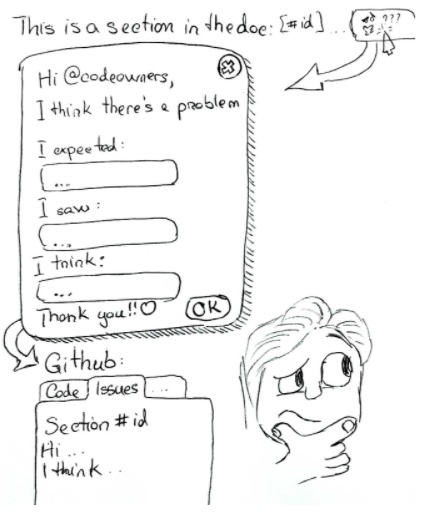 This is a section in the doc: [#id] ... ???
Hi @codeowners,
I think there's a problem
I expected:
...
I saw:
...
I think:
...
Thank you!!
OK
Github:
Code Issues ...
Section #id
Hi ...
I think ...